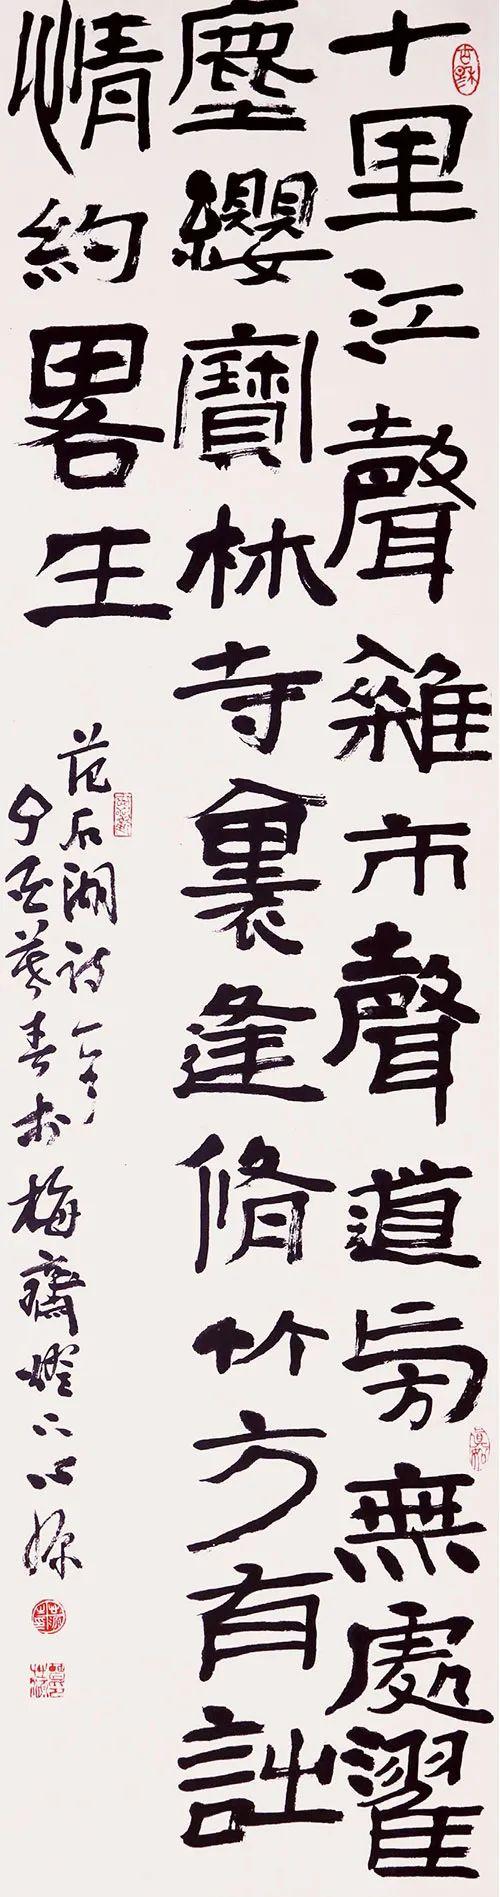 十里江聲雜市聲道旁無處濯
塵纓寶林寺裏逢脩竹方有詩
情約畧生
范石湖詩一首
暮春於梅齋燈下